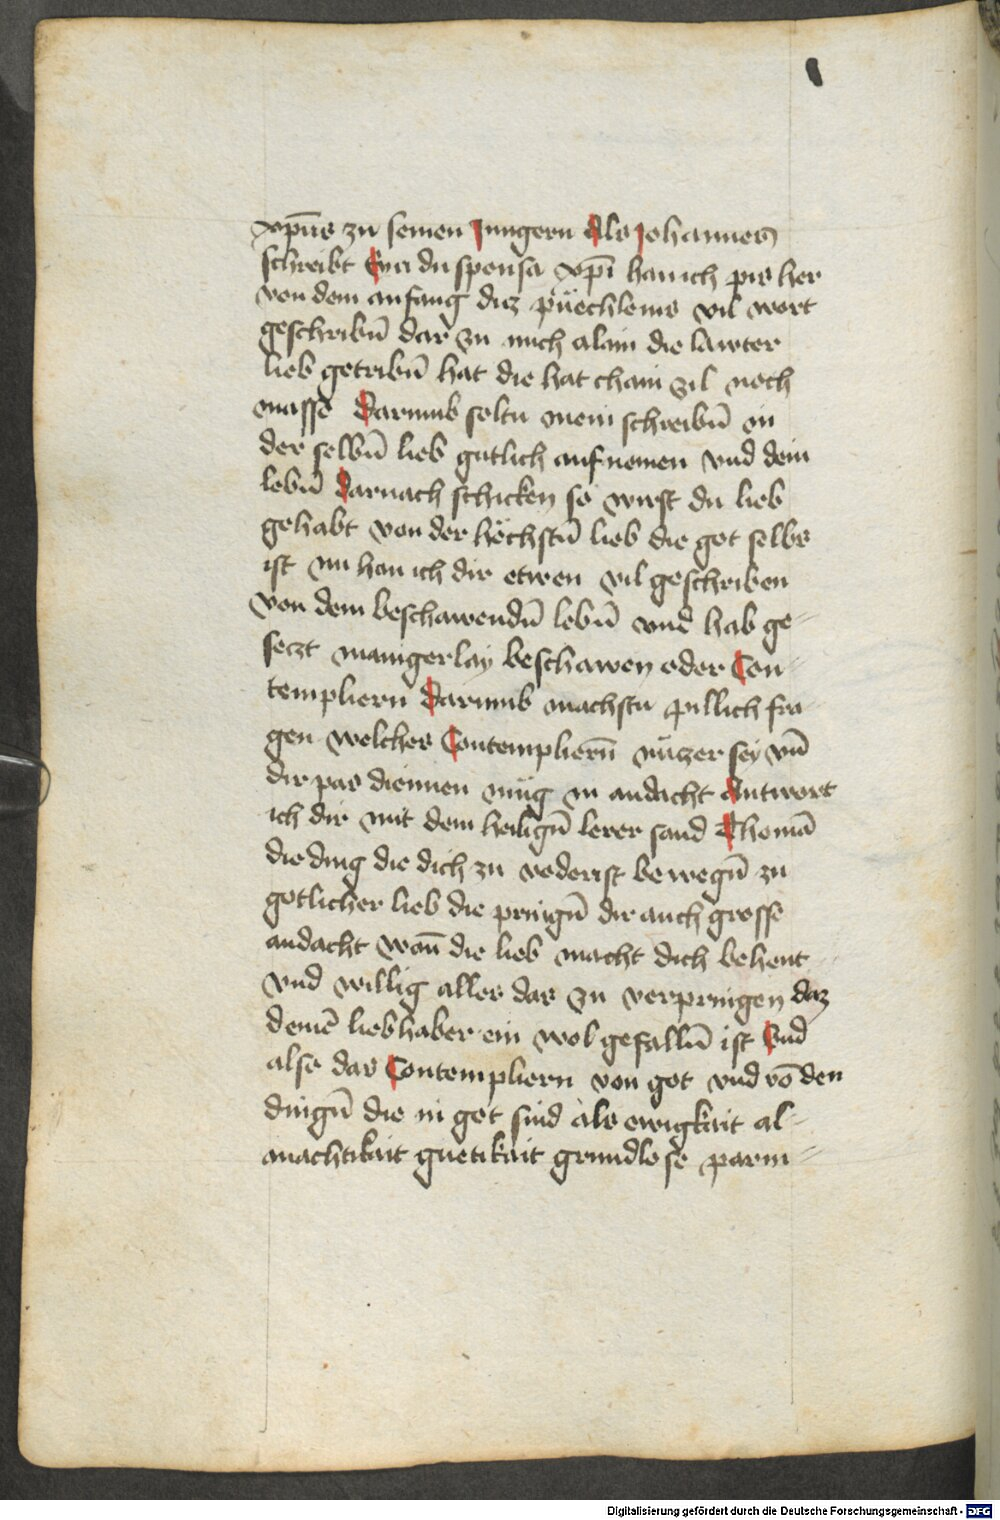 xp̄us zu seinen Jungern Als Johannes
schreibt Eya du sponsa xp̄i han ich pis her
von dem anfang diz püechleins vil wort
geschribn̄ dar zu mich alain die lawter
lieb getribn̄ hat die hat chain zil noch
masse Darumb soltu mein schreibn̄ in
der selbn̄ lieb gutlich aufnemen vnd dein
lebn̄ darnach schicken so wirst du lieb
gehabt von der höchstn̄ lieb die got selbs
ist nu han ich dir etwen vil geschriben
von dem beschawendn̄ lebn̄ vnd hab ge-
seczt manigerlay beschawen oder Con-
templiern Darumb machstu pillich fra
gen welches Contempliern̄ nüczer sey vn̄
dir pas diennen müg in andacht Antwort
ich dir mit dem heilign̄ lerer sand Thomā
die ding die dich zu voderist bewegn̄ zu
gotlicher lieb die pringn̄ dir auch grosse
andacht wan̄ die lieb macht dich behent
vnd willig alles das zu verpringen daz
deinē liebhaber ein wolgefalln̄ ist Vnd
also das Contempliern von got vnd vō den
dingn̄ die in got sind als ewigkait al-
machtikait guetikait grundlose parm-
Digitalisierung gefördert durch die Deutsche Forschungsgemeinschaft - DFG